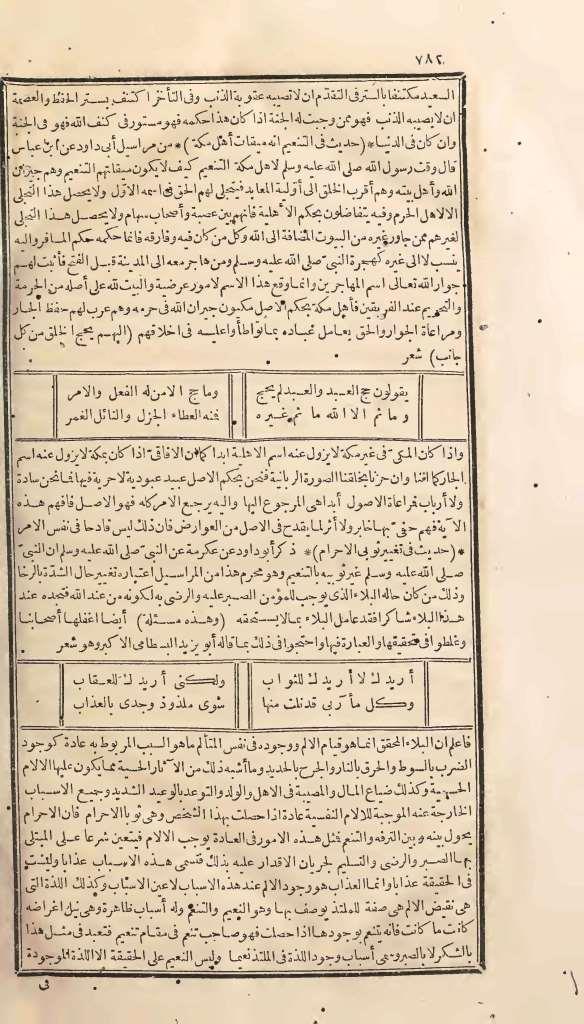 ٧٨٢
السعيد مكتنفا بالستر في التقدم ان لا تصيبه عقوبة الذنب وفي التأخر اكتنف بستر الحفظ والعصمة
ان لا يصيبه الذنب فهو ممن وجبت له الجنة اذا كان هذا حكمه فهو مستور في كنف الله فهو في الجنة
وان كان في الدنيا *(حديث في التنعيم انه ميقات أهل مكة)* من مراسيل أبي داود عن ابن عباس
قال وقت رسول الله صلى الله عليه وسلم لاهل مكة التنعيم كيف لا يكون ميقاتهم التنعيم وهم جيران
الله وأهل بيته وهم أقرب الخلق الى أولية المعابد فيتجلى لهم الحق في اسمه الاول ولا يحصل هذا التجلي
الا لاهل الحرم وفيه يتفاضلون بحكم الأهلية فانهم بين عصبة وأصحاب سهام ولا يحصل هذا التجلي
لغيرهم ممن جاور غيره من البيوت المضافة الى الله وكل من كان فيه وفارقه فانما حكمه حكم المسافر واليه
ينسب لا الى غيره كهجرة النبي صلى الله عليه وسلم ومن هاجر معه الى المدينة قبل الفتح فأثبت لهم
جوار الله تعالى اسم المهاجرين وانما وقع هذا الاسم لامور عرضية والبيت لله على أصله من الحرمة
والتحريم عند الفريقين فأهل مكة بحكم الاصل مكيون جيران الله في حرمه وهم عرب لهم حفظ الجار
ومراعاة الجوار والحق يعامل عباده بما تواطأوا عليه في اخلاقهم (اليهم يحج الخلق من كل
جانب) شعر
يقولون حج العبيد والعبد لم يحج وما حج الا من له الفعل والامر
وما ثم الا الله ما ثم غيره فنه العطاء الجزل والنائل الغمر
واذا كان المكي في غير مكة لا يزول عنه اسم الاهلية ابدا كما ان الافاقي اذا كان بمكة لا يزول عنه اسم
الجار كما اننا وان حزنا بخلقنا الصورة الربانية فنحن بحكم الاصل عبيد عبودية لا حرية فيها فما نحن سادة
ولا أرباب فراعاة الاصول أبدا هي المرجوع اليها واليه يرجع الامر كله فهو الاصل فافهم هذه
الآية فهم حق بها خابر ولا أثر لما يقدح في الاصل من العوارض فان ذلك ليس قادحا في نفس الامر
*(حديث في تغيير ثوبي الاحرام)* ذكر أبو داود عن عكرمة عن النبي صلى الله عليه وسلم ان النبي
صلى الله عليه وسلم غير ثوبيه بالتنعيم وهو محرم هذا من المراسيل اعتباره تغيير حال الشدة بالرخا
وذلك من كان حاله البلاء الذي يوجب للمؤمن الصبر عليه والرضى به لكونه من عند الله فتجده عند
هذا البلاء شاكرا فقد عامل البلاء بما لا يستحقه (وهذه مسئلة) أيضا اغفلها أصحابنا
وغلطوا في تحقيقها والعبارة فيها واحتجوا في ذلك بما قاله أبو يزيد البسطامي الاكبر وهو شعر
أريدك لا أريدك للثواب ولكني أريدك للعقاب
وكل مآربي قد نلت منها سوى ملذوذ وجدي بالعذاب
فاعلم ان البلاء المحقق انما هو قيام الالم ووجوده في نفس المتألم ما هو السبب المربوط به عادة كوجود
الضرب بالسوط والحرق بالنار والجرح بالحديد وما أشبه ذلك من الآثار الحسية مما يكون عليها الالام
الحسية وكذلك ضياع المال والمصيبة في الاهل والولد والتوعد بالوعيد الشديد وجميع الاسباب
الخارجة عنه الموجبة للالام النفسية عادة اذا حصلت بهذا الشخص وهي ثوبا الاحرام فان الاحرام
يحول بينه وبين الترفه والتنعم فمثل هذه الامور في العادة يوجب الالام فيتعين شرعا على المبتلى
بها الصبر والرضى والتسليم لجريان الاقدار عليه بذلك فتسمى هذه الاسباب عذابا وليست
في الحقيقة عذابا وانما العذاب هو وجود الالم عند هذه الاسباب لا عين الاسباب وكذلك اللذة التي
هي نقيض الالم هي صفة للملتذ يوصف بها وهو النعيم والتنعم وله أسباب ظاهرة وهي نيل اغراضه
كانت ما كانت فانه يتنعم بوجودها اذا حصلت فهو صاحب تنعم في مقام تنعيم فتعبد في مثل هذا
بالشكر لا بالصبر وهي أسباب وجود اللذة في الملتذ نعيما وليس النعيم على الحقيقة الا اللذة الموجودة
في